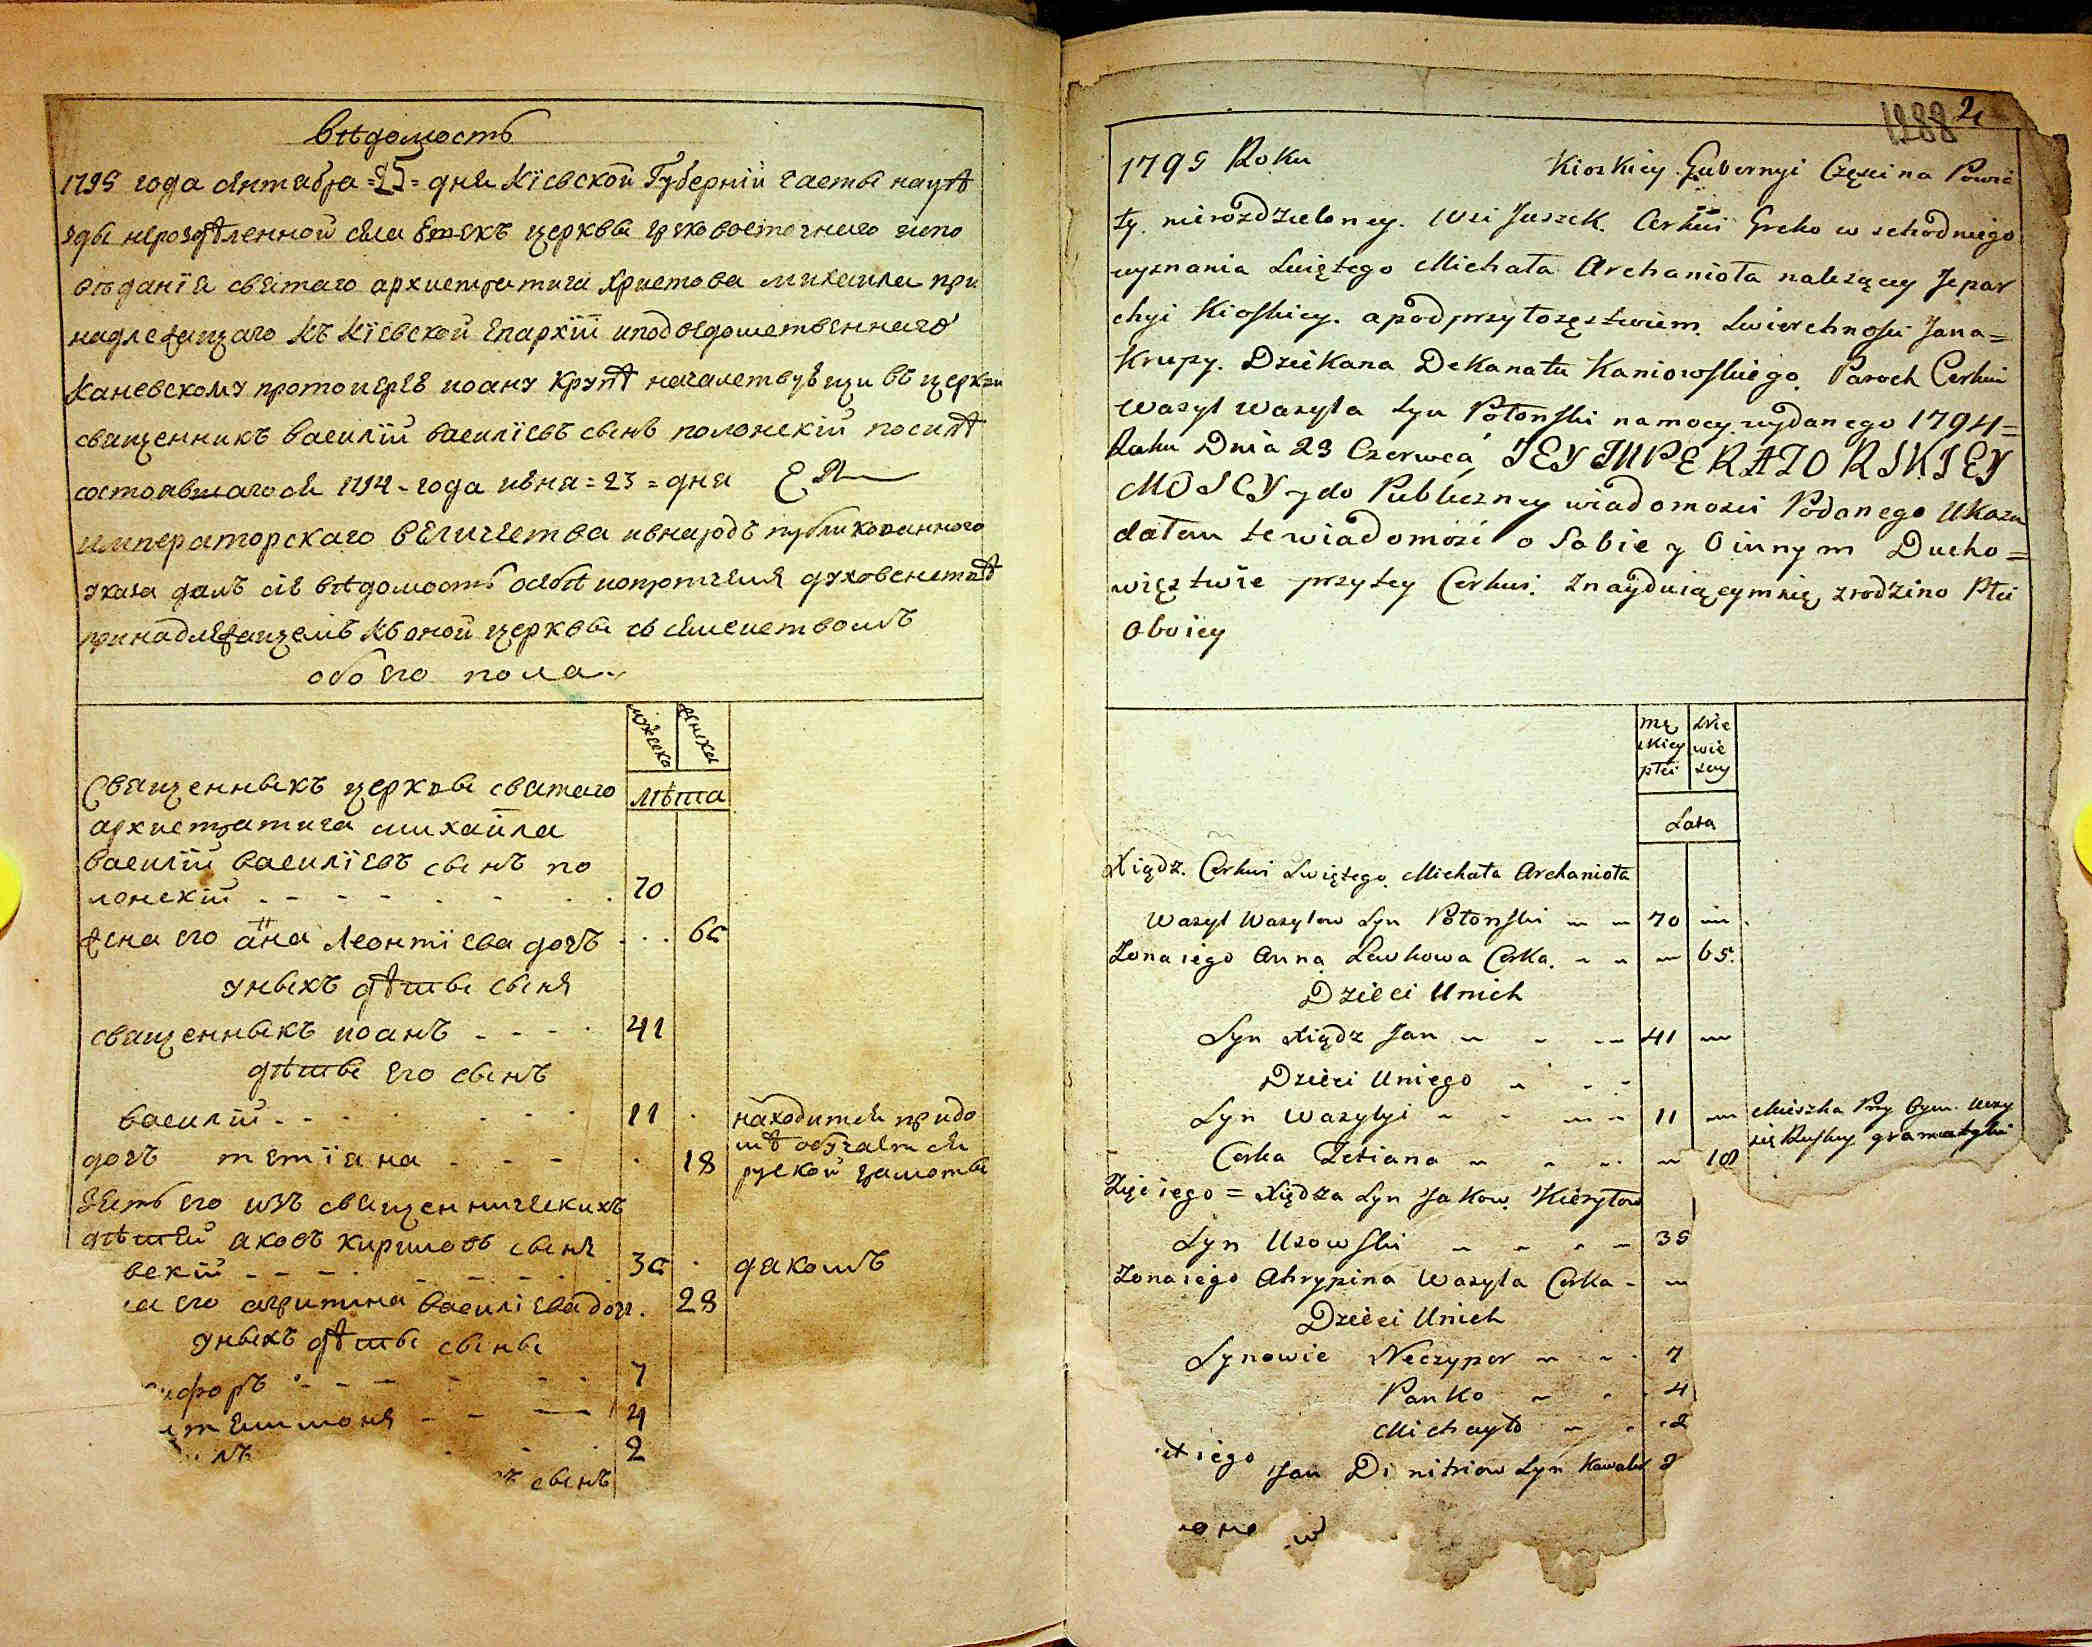 вѣдомость
1795 года сентабра = 25 = дня кіевской губерніи часты науѣ
зды нероздѣленной села церквы грековосточнаго испо
вѣданїя святаго архистратига христова михаила при
надлежащаго къ кіевской епархїи иподведомственнаго
каневскому протоиерев иоану крупѣ началствуващи въ церкви
священникъ василїй василїевъ сынъ полонскїй посилѣ
состоявшагося 1794 - года июня = 23 = дня
императорскаго величества ивнародъ публикованного
указа далъ сїе вѣдомость осебѣ ио духовенствѣ
принадлежащемъ къ оной церквы съ семействомъ
обоего пола
мужеска
женска
Священныкъ церквы святаго
лѣта
архистратига михайла
василїй василїевъ сынъ по
лонскїй 70
жена его анна леонтїева дочъ 65
уныхъ дѣты сыня
священныкъ иоанъ 41
дѣты его сынъ
василїй 11 находится придо
мѣ обучается
дочъ тетїана 18 руской грамоты
зять его изъ священническихъ
дѣтей аковъ кириловъ сынъ
вскїй 35 дякомъ
его агрипина василїева доч. 28
уныхъ дѣты сыны
ифоръ 7
4
2
сынъ
1288 2
1795 Roku Kiozkiey Gubernyi Części na Powia
ty. nierozdzieloney. Wsi Juszek. Cerkwi Greko wschodniego
wyznania Swiętego Michała Archanioła nalezący Jepar
chyi Kioskiey. a pod przytozęstwiem Zwierchnosci Jana =
Krupy. Dziekana Dekanatu Kaniowskiego. Paroch Cerkwi
Wazyl Wazyla Syn Połonski na mocy wydanego 1794 =
Roku Dnia 23 Czerwca JEY IMPERATORSKIEY
MOSCY y do Publiczney wiadomosci Podanego Ukazu
datem te wiadomość o Sobie y O innym Ducho =
więstwie przytey Cerkwi. Znayduiącym się z rodzino Płci
Oboiey
mę skiey płci
Nie wie sciy
Lata
Xiądz. Cerkwi Swiętego Michała Archanioła
Wazyl Wazylow Syn Połonski 70
Zona iego Anna Lewkowa Corka. 65.
Dzieci Unich
Syn Xiądz Jan 41
Dzieci Uniego
Syn Wazylyi 11 Mieszka Przy Oycu. Uczy
się Ruskiey gramatyki
Corka Tetiana 18
Zięc iego = Xiędza Syn Jakow Kierylow
Syn Usowski 35
Zona iego Ahrypina Wazyla Corka
Dzieci Unich
Synowie Neczypor 7
Panko 4
Michayło 2
iego Jan Dimitriow Syn